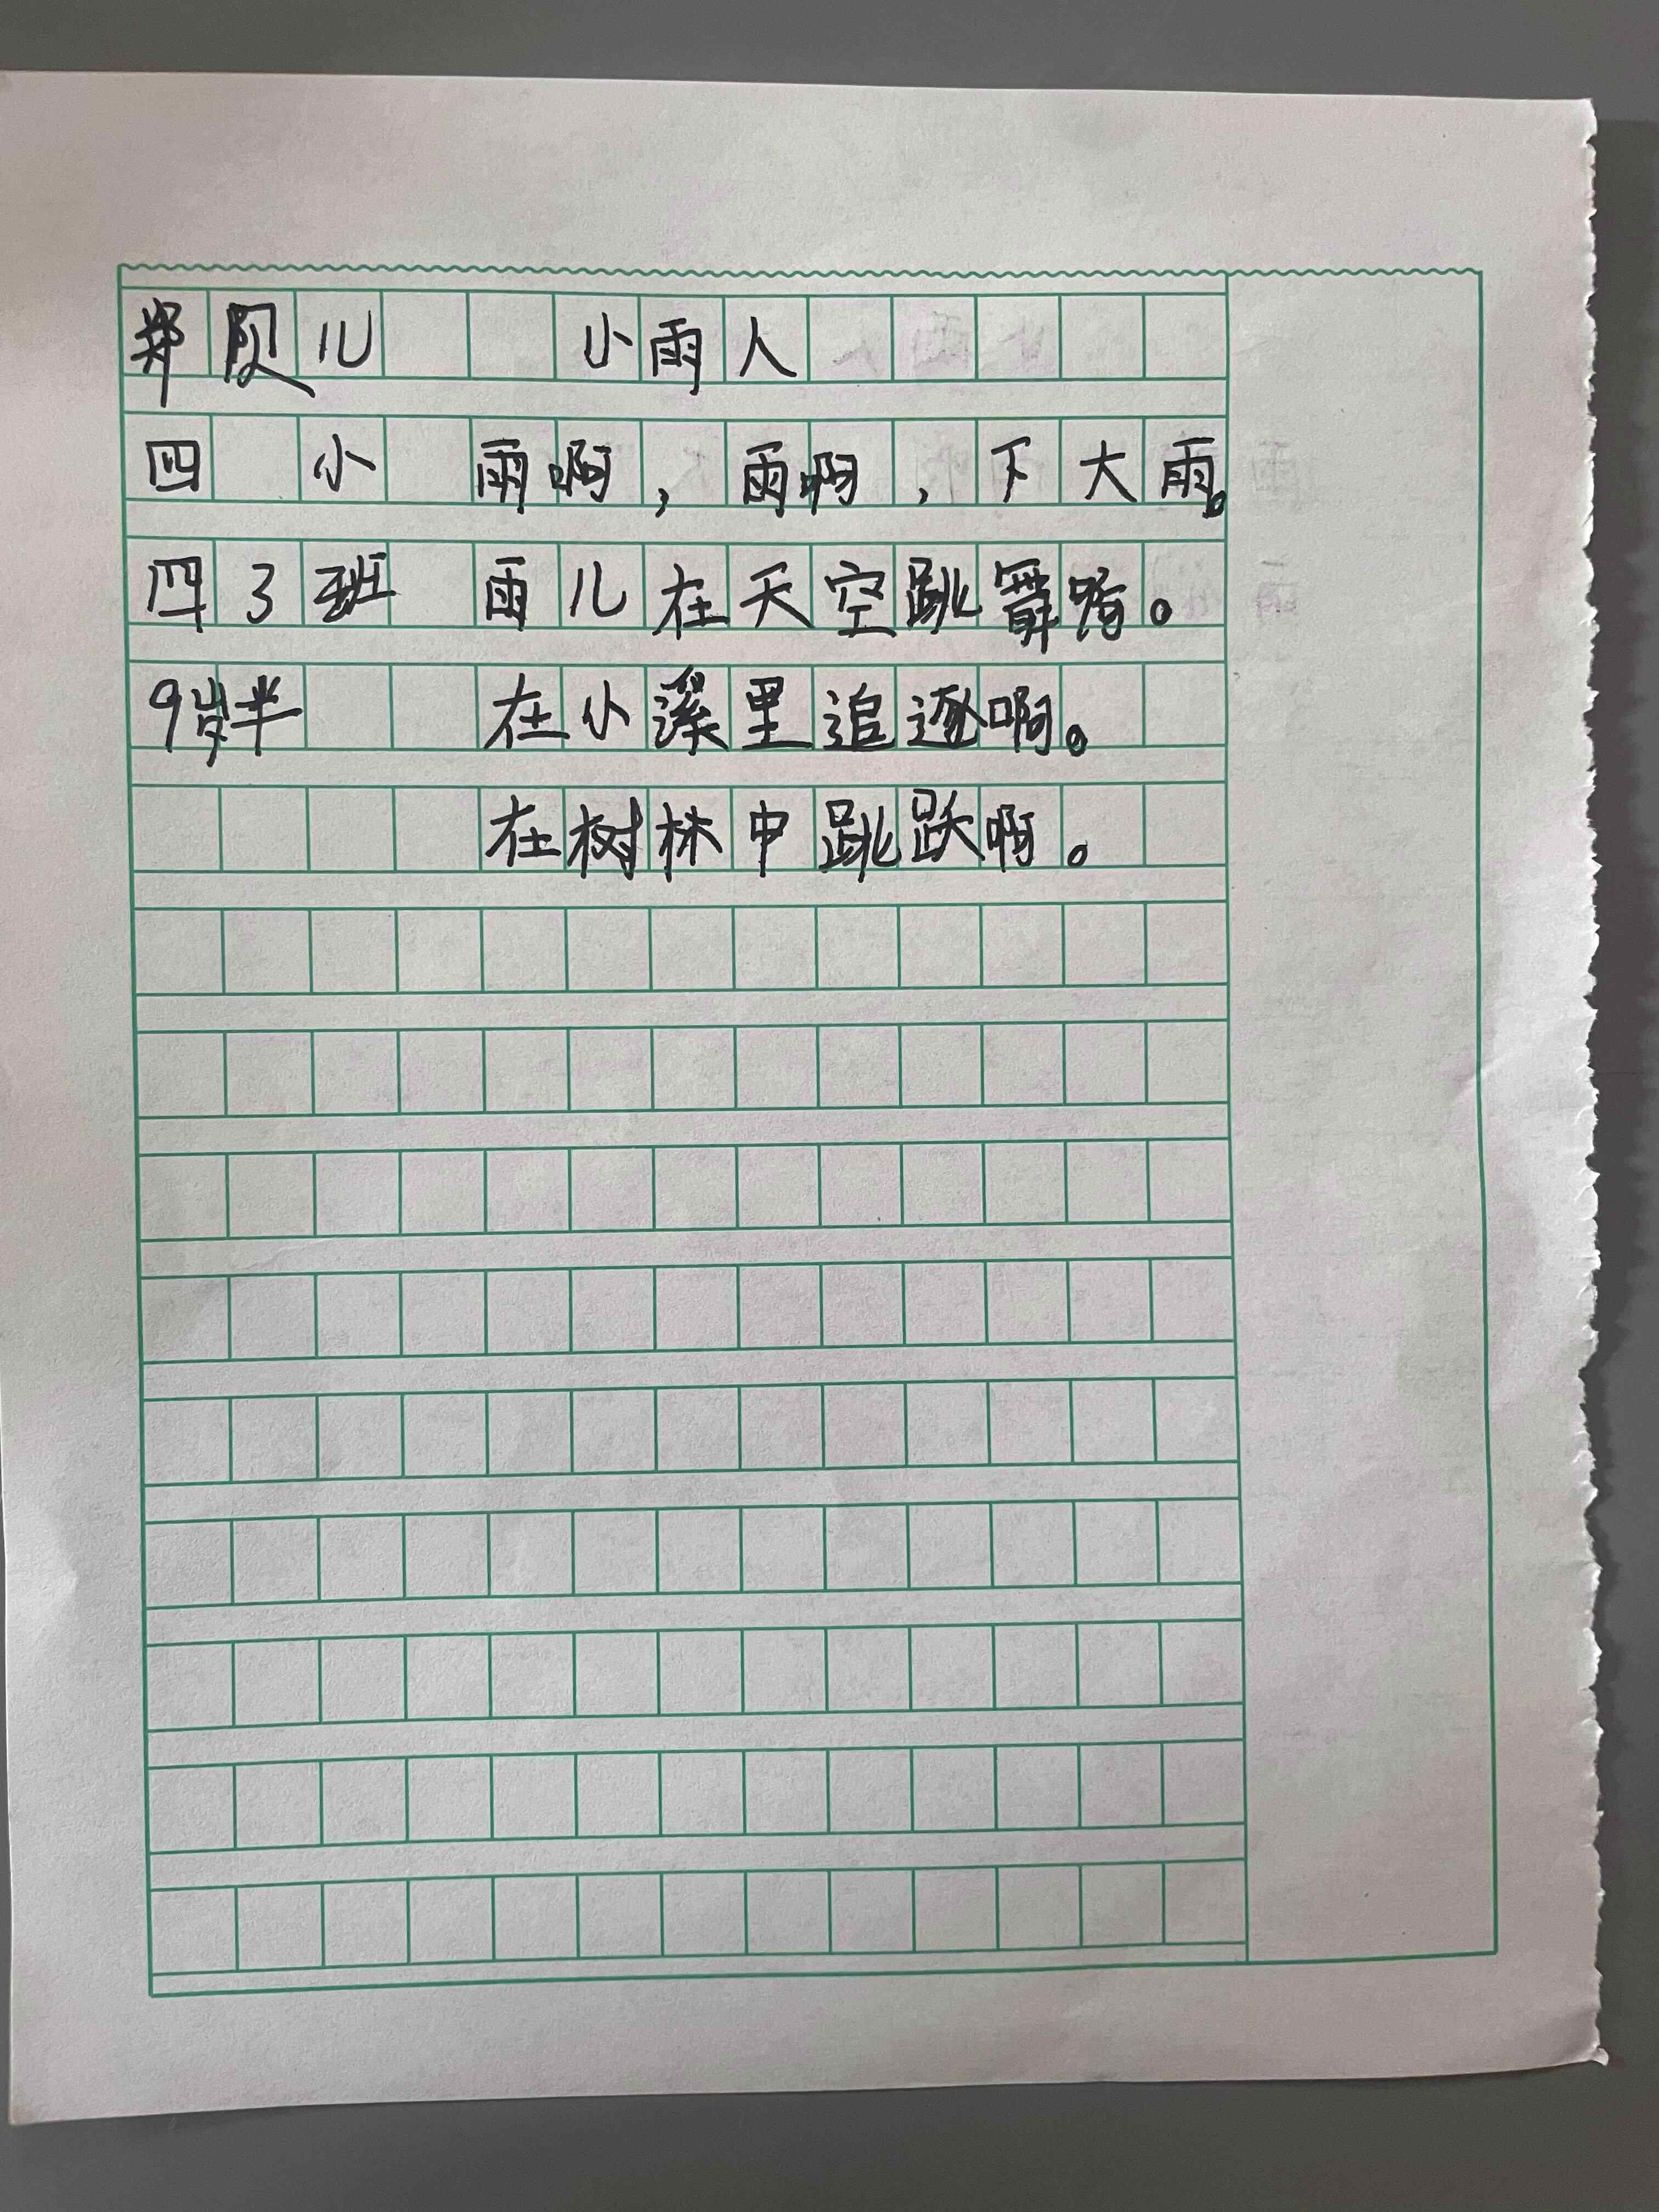 郑 儿 小雨人
四 小 雨啊，雨啊，下大雨。
四3班 雨儿在天空跳舞 。
9岁半 在小溪里追逐啊。
在树林中跳跃啊。